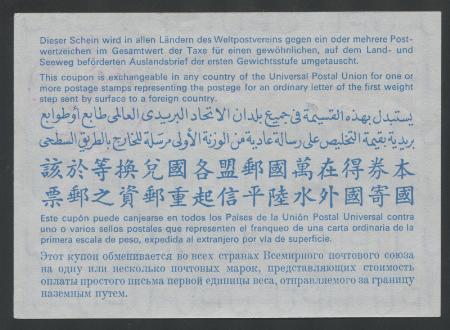 Dieser Schein wird in allen Ländern des Weltpostvereins gegen ein oder mehrere Post-
wertzeichen im Gesamtwert der Taxe für einen gewöhnlichen, auf dem Land- und
Seeweg beförderten Auslandsbrief der ersten Gewichtsstufe umgetauscht.
This coupon is exchangeable in any country of the Universal Postal Union for one or
more postage stamps representing the postage for an ordinary letter of the first weight
step sent by surface to a foreign country.
يستبدل بهذه القسيمة فى جميع بلدان الاتحاد البريدى العالمى طابع أو طوابع
بريدية بقيمة التخليص على رسالة عادية من الوزنة الأولى مرسلة للخارج بالطريق السطحى
該於等換兌國各盟郵國萬在得券本
票郵之資郵重起信平陸水外國寄國
Este cupón puede canjearse en todos los Países de la Unión Postal Universal contra
uno o varios sellos postales que representen el franqueo de una carta ordinaria de la
primera escala de peso, expedida al extranjero por vía de superficie.
Этот купон обменивается во всех странах Всемирного почтового союза
на одну или несколько почтовых марок, представляющих стоимость
оплаты простого письма первой единицы веса, отправляемого за границу
наземным путем.